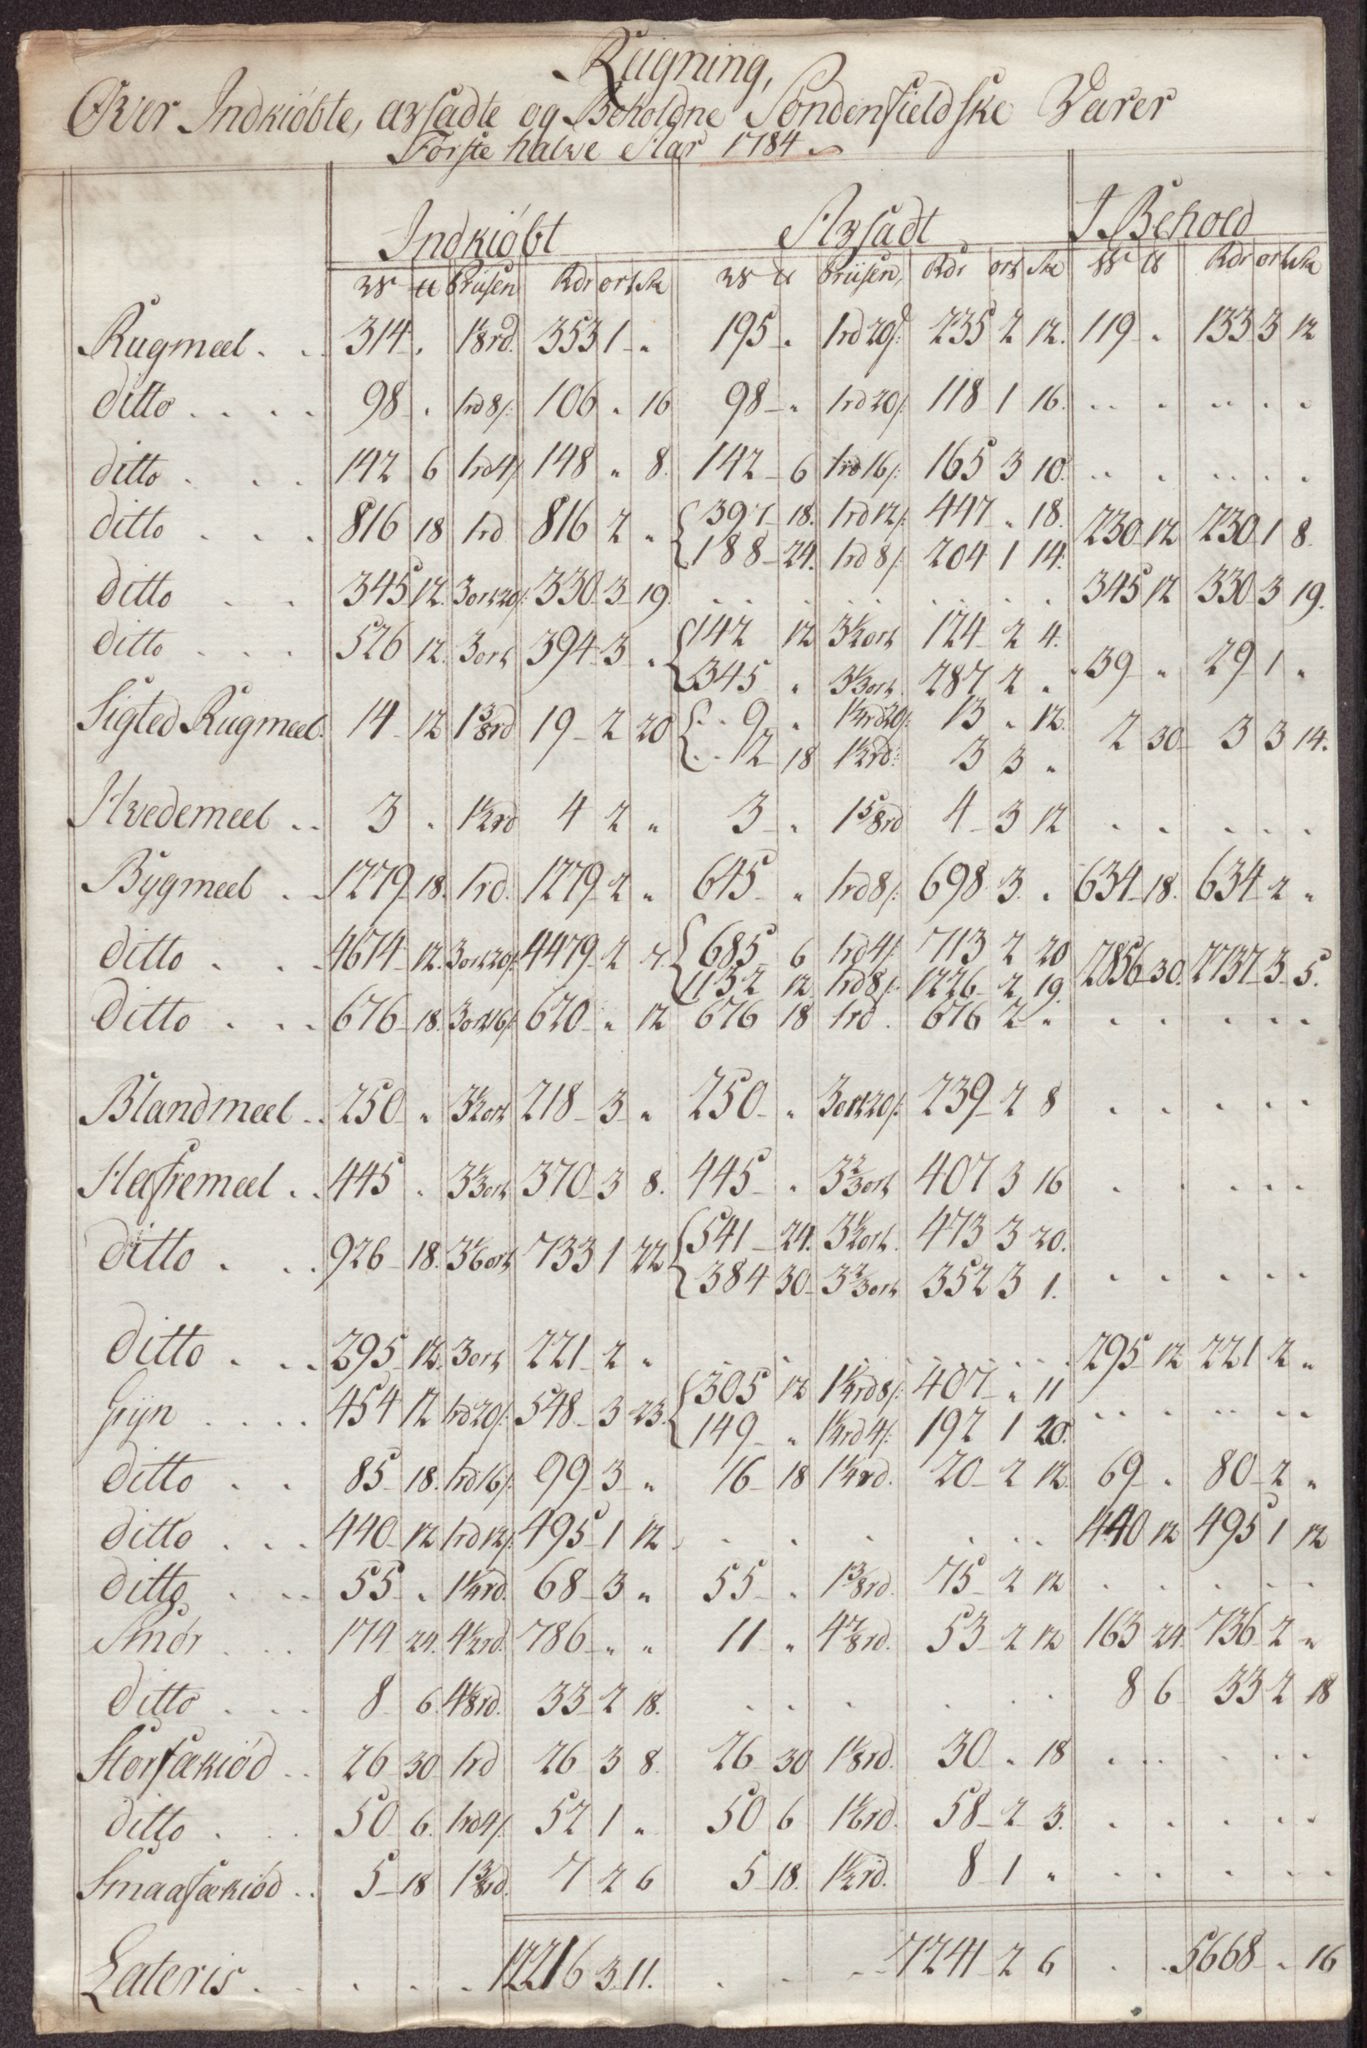 Reigning,
Over Indkiöbte, avsadte og Beholdne Söndenfieldske Varer
Förste halve Aar 1784
Indkiöbt Avsadt I Behold
W ℔ Priisen Rdr ort sk W ℔ Priisen, Rdr ort sk W ℔ Rdr ort sk
Rugmeel . . 314 „ 1⅛rd. 353 1 „ 195 „ 1rd20s: 235 2 12. 119 „ 133 3 12
ditto . . . . 98 „ 1rd8s: 106 „ 16 98 „ 1rd20s: 118 1 16. . . . . .
ditto . . . 142 6 1rd4s: 148 „ 8. 142 6 1rd16s: 165 3 10. . . . . .
ditto . . . 816 18 1rd 816 2 „ { 397 18. 1rd12s: 447 „ 18. 230 12 230 1 8.
{ 188 24. 1rd8s: 204 1 14.
ditto . . 345 12. 3ort20s: 330 3 19. . . . . . . 345 12 330 3 19.
ditto . . . 526 12. 3ort 394 3 „ { 142 12 3½ort 124 2 4. 39 „ 29 1 „
{ 345 „ 3⅓ort. 287 2 „
Sigted Rugmeel. 14 12 1⅜rd 19 2 20 { . . 9 „ 1¼rd20s: 13 „ 12. 2 30 3 3 14.
{ . . 2 18 1½rd: 3 3 „
Hvedemeel . . 3 „ 1½rd 4 2 „ 3 „ 1⅝rd 4 3 12 . . . . .
Bygmeel . . 1279 18. 1rd. 1279 2 „ 645 „ 1rd8s: 698 3. „ 634 18. 634 2 „
ditto . . . 4674 12. 3ort20s: 4479 2 7. { 685 6 1rd4s: 713 2 20 2856 30. 2737 3 5.
{ 1132 12 1rd8s: 1226 2 19.
ditto . . . 676 18. 3ort16s: 620 „ 12 676 18 1rd . 676 2 „ . . . . .
Blandmeel . . 250 „ 3½ort 218 3 „ 250 „ 3ort20s: 239 2 8 . . . . .
Hafremeel . . 445 „ 3⅓ort 370 3 8. 445 „ 3⅔ort 407 3 16 . . . . .
ditto . . . 926 18. 3⅙ort 733 1 22 { 541 24. 3½ort. 473 3 20.
{ 384 30 3⅔ort 352 3 1. . . . . .
ditto . . . 295 12. 3ort 221 2 „ . . . . . . 295 12 221 2 „
Gryn . . . . 454 12 1rd20s: 548 3 23. { 305 12 1¼rd8s: 407 „ 11 . . . . .
{ 149 „ 1¼rd4s: 192 1 20.
ditto . . 85 18. 1rd16s: 99 3 „ 16 18 1¼rd. 20 2 12. 69 „ 80 2 „
ditto . . . 440 12 1rd12s: 495 1 12 . . . . . . 440 12 495 1 12
ditto . . . 55 „ 1¼rd. 68 3 „ 55 „ 1⅜rd. 75 2 12 . . . . .
Smör . . . 174 24. 4½rd. 786 „ „ 11 „ 4⅞rd. 53 2 12 163 24. 736 2 „
ditto . . . 8 6. 4⅛rd. 33 2 18. . . . . . . 8 6 33 2 18
Storfækiöd . . 26 30 1rd 26 3 8. 26 30 1⅛rd. 30 „ 18 . . . . .
ditto . . . 50 6. 1rd4s: 52 1 „ 50 6 1⅙rd. 58 2 3. . . . . .
Smaafækiöd . . 5 18 1⅜rd. 7 2 6 5 18. 1½rd. 8 1 „ . . . . .
Lateris . . . . . 12216 3 11. . . . . 7241 2 6 . . 5668 „ 16